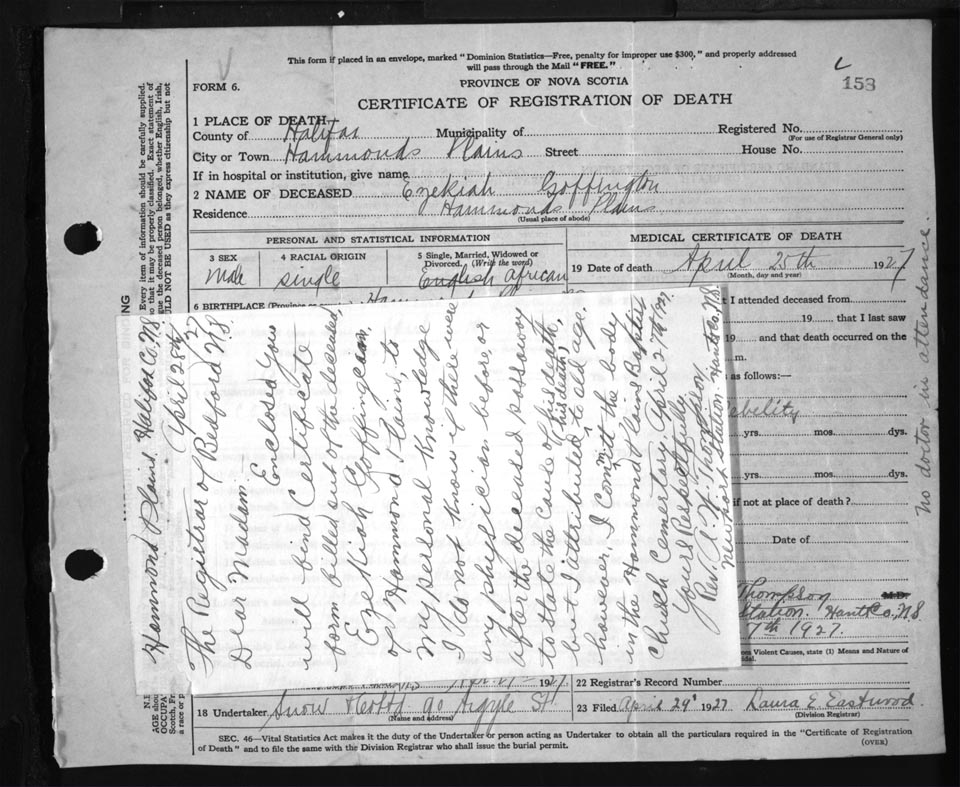 This form if placed in an envelope, marked "Dominion Statistics—Free, penalty for improper use $300," and properly addressed
will pass through the Mail "FREE."
153
FORM 6.
PROVINCE OF NOVA SCOTIA
CERTIFICATE OF REGISTRATION OF DEATH
1 PLACE OF DEATH
County of Halifax Municipality of Registered No.
(For use of Registrar General only)
City or Town Hammonds Plains Street House No.
If in hospital or institution, give name
2 NAME OF DECEASED Ezekiah Goffington
Residence Hammonds Plains
(Usual place of abode)
PERSONAL AND STATISTICAL INFORMATION
3 SEX 4 RACIAL ORIGIN 5 Single, Married, Widowed or
Divorced. (Write the word)
Male single English African
6 BIRTHPLACE (Province or
MEDICAL CERTIFICATE OF DEATH
19 Date of death April 25th 1927
(Month, day and year)
I attended deceased from
19 that I last saw
19 and that death occurred on the
m.
as follows:—
ebility
yrs. mos. dys.
yrs. mos. dys.
if not at place of death?
Date of
Thompson M.D.
Station. Hants Co., N.S
7th 1927.
Violent Causes, state (1) Means and Nature of
No doctor in attendence
22 Registrar's Record Number
1927
18 Undertaker Snow 90 Argyle St
(Name and address)
23 Filed April 29' 1927 Laura E. Eastwood.
(Division Registrar)
SEC. 46—Vital Statistics Act makes it the duty of the Undertaker or person acting as Undertaker to obtain all the particulars required in the "Certificate of Registration
of Death" and to file the same with the Division Registrar who shall issue the burial permit.
(OVER)
Every item of information should be carefully supplied.
so that it may be properly classified. Exact statement of
the deceased person belonged, whether English, Irish,
NOT BE USED as they express citizenship but not
Hammond Plains. Halifax Co. N.S
April 28th 27
The Registrar of Bedford N.S,
Dear Madam
Enclosed you
will find Certificate
form filled out of the deceased,
Ezekiah Goffingcan,
of Hammond Plains, to
my personal knowledge
I do not know if there were
any physician before, or
after the deceased passaway
to state the cause of his death,
but I attributed this death, to old age.
however, I Committ the body
in the Hammond Plains Baptist
Church Cemertary, April 27th 1927.
Yours Respectfully
Rev. A. W. Thompson
Newport Station Hants Co., N.S